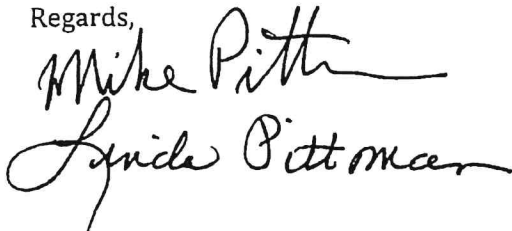 Regards,
Mike Pitt
Lynda Pittman